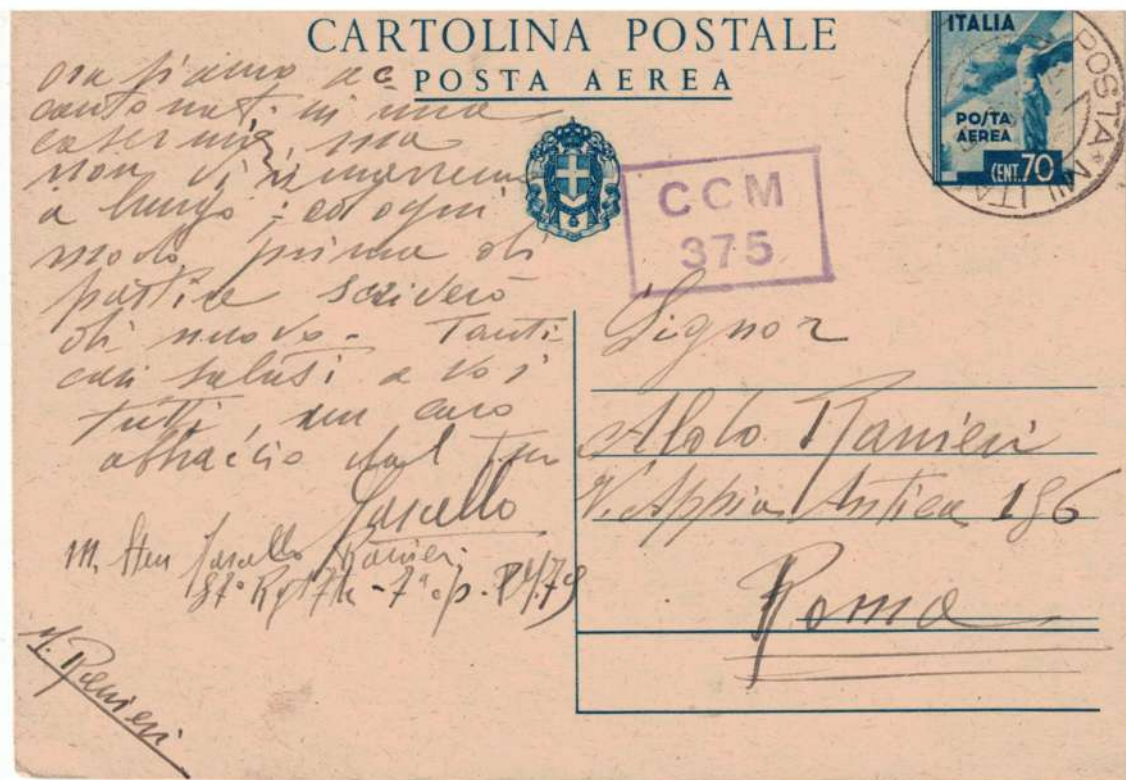 CARTOLINA POSTALE
POSTA AEREA
ITALIA
POSTA
AEREA
CENT. 70
POSTA MILITA
CCM
375
ora siamo ac
cantonati in una
caserma, ma
non vi rimarremo
a lungo; ad ogni
modo prima di
partire scriverò
di nuovo - Tanti
cari saluti a voi
tutti, un caro
abbraccio dal tuo
Ranieri
7ª
M. Ranieri
Signor
Aldo Ranieri
V. Appia Antica 186
Roma